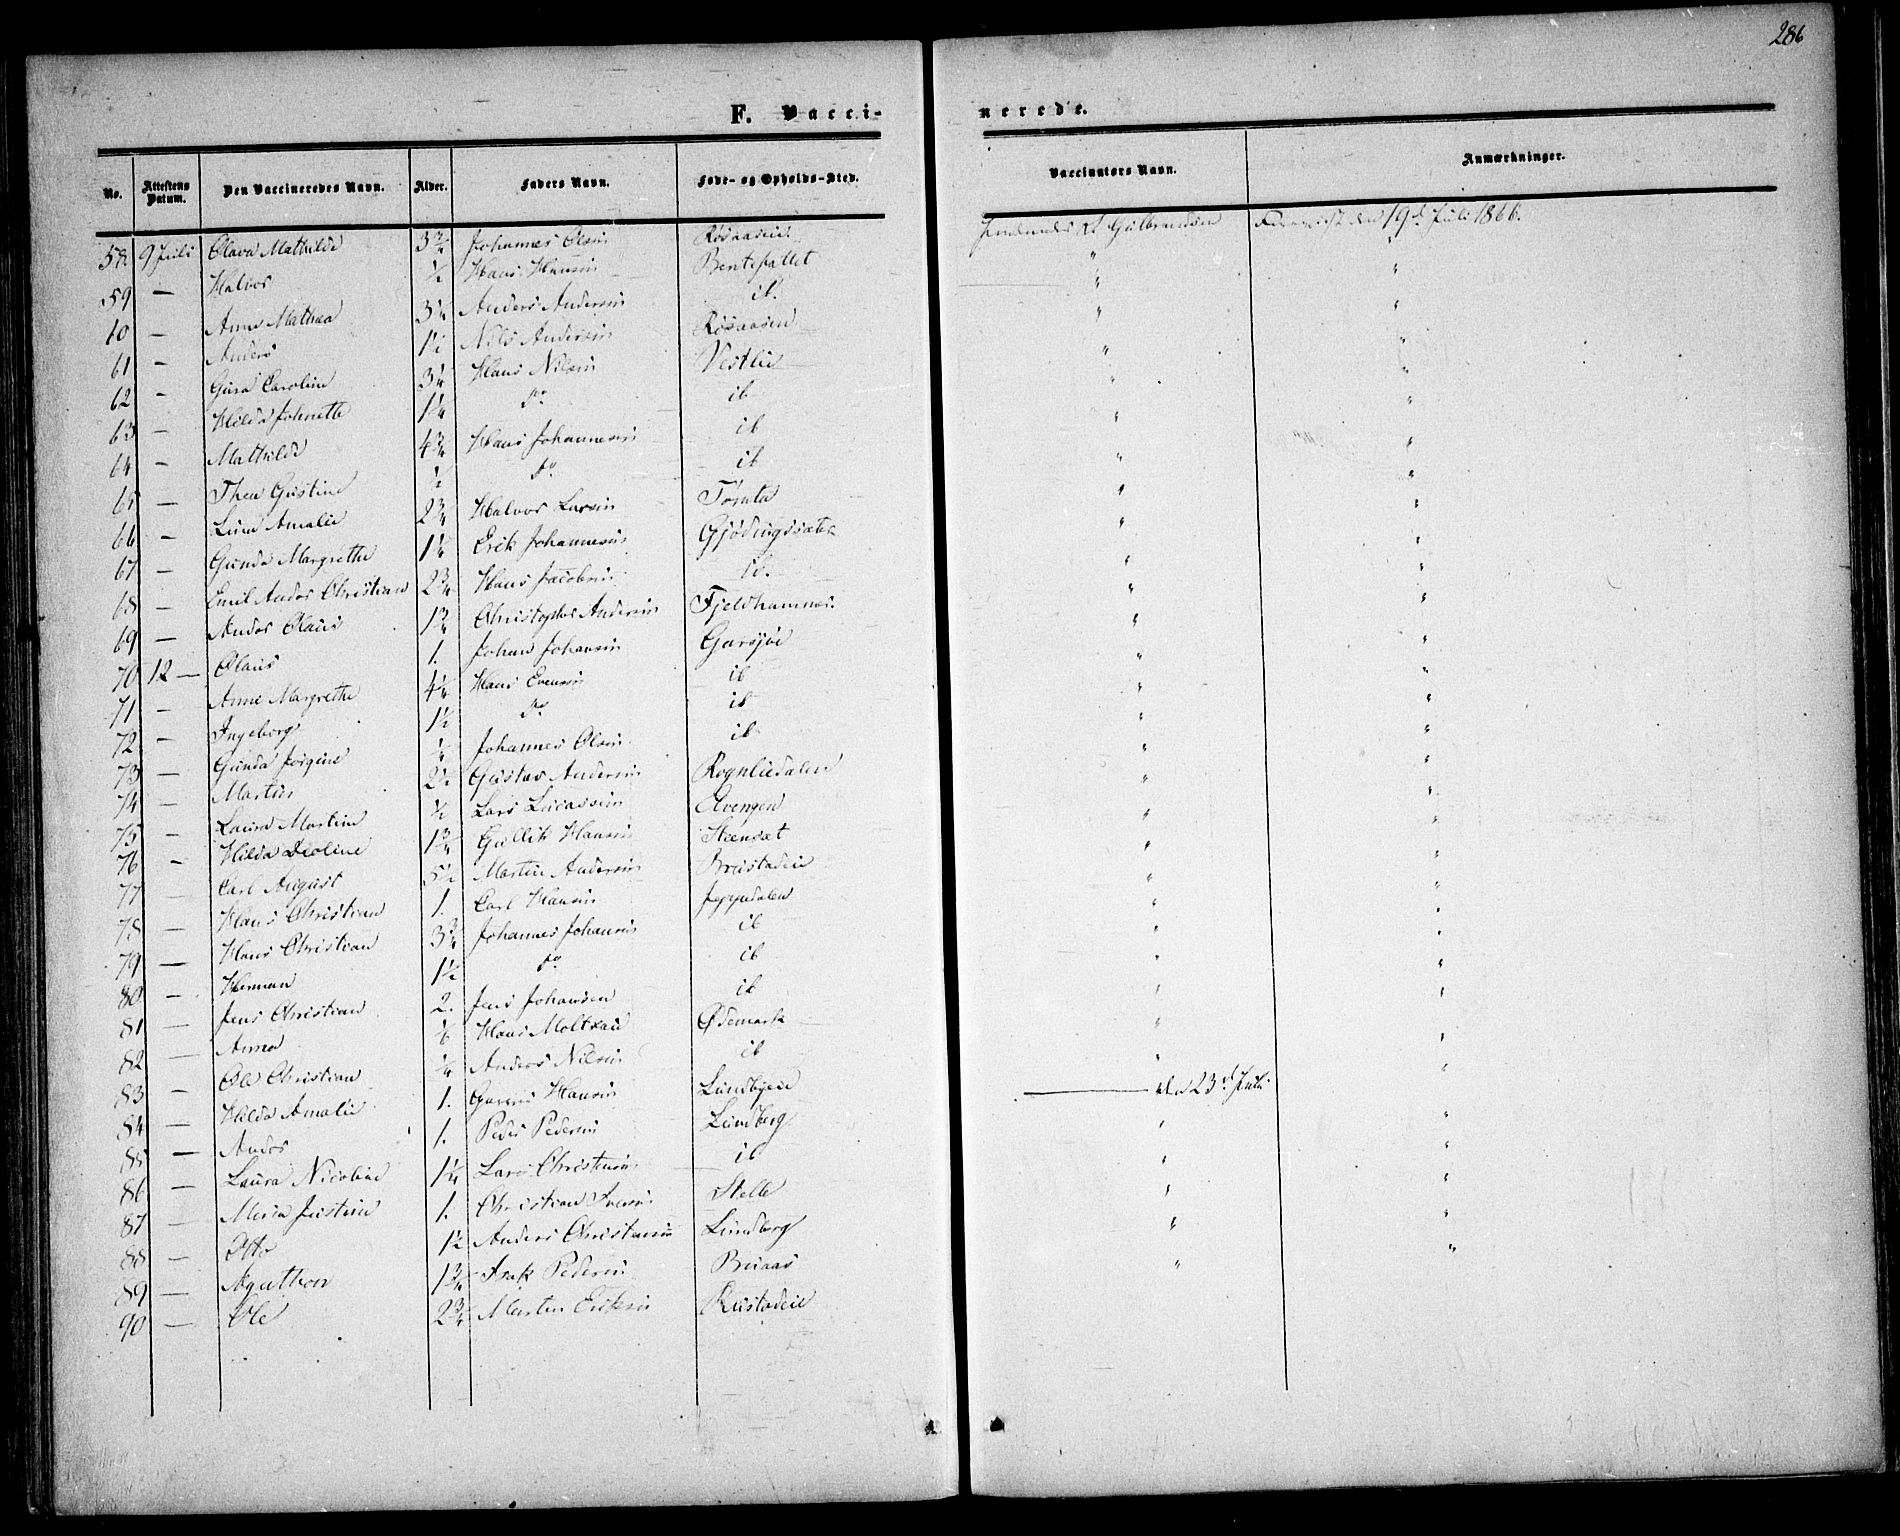 286
F. Vaccinerede.
No. Attestens Datum. Den Vaccineredes Navn. Alder. Faders Navn. Føde- og Opholds-Sted. Vaccinators Navn. Anmærkninger.
58. 9 Juli Olava Mathilde 3¾ Johannes Olsen Røsaaseie Gulbrandsen den 19de Juli 1866.
59 — Halvor ½ Hans Hansen Bentepladet " "
60 — Anne Mathea 3¼ Anders Andersen ib. " "
61 — Anders 1½ Nils Andersen Røsaasen " "
62 — Gina Caroline 3¼ Hans Nilsen Vestlie " "
63 — Hilda Johnette 1¼ do ib " "
64 — Mathilde 4¾ Hans Johannesen ib " "
65 — Thea Gustine ½ do ib " "
66 — Lina Amalie 2¾ Halvor Larsen Tomta " "
67 — Gunda Margrethe 1¼ Erik Johannesen Gjødingssæter " "
68 — Emil Anders Christian 2¾ Hans Jacobsen ib. " "
69 — Anders Olaus 1¾ Christopher Andersen Fjeldhammer. " "
70 12 — Olaus 1. Johan Johansen Garsjøe " "
71 — Anne Margrethe 4¼ Hans Evensen ib " "
72 — Ingeborg 1½ do ib " "
73 — Gunda Jorgine ¼ Johannes Olsen ib " "
74 — Martin 2½ Gustav Andersen Rognliedalen " "
75 — Laura Martine ½ Lars Lucassen Elvengen " "
76 — Hilda Ololine 1¾ Gullik Hansen Steensæt " "
77 — Carl August 5½ Martin Andersen Brustadeie " "
78 — Hans Christian 1. Carl Hansen Jeppedalen " "
79 — Hans Christian 3¾ Johannes Johansen ib " "
80 — Herman 1½ do ib " "
81 — Jens Christian 2. Jens Johansen ib " "
82 — Anna Hans Moltzau Ødemark " "
83 — Ole Christian ¼ Anders Nilsen ib " "
84 — Hilda Amalie 1. Hansen Lundbyeie — den 23de Juli "
85 — Anders 1. Peder Pedersen Lundberg " "
86 — Laura Nicoline 1¼ Lars Christensen ib " "
87 — Maria Justine 1. Christian Iversen Stelle " "
88 — Otto 1½ Anders Christensen Lundberg " "
89 — Agathon 1¾ Isak Pedersen Bruaas " "
90 — Ole 2¾ Martin Eriksen Rustadeie